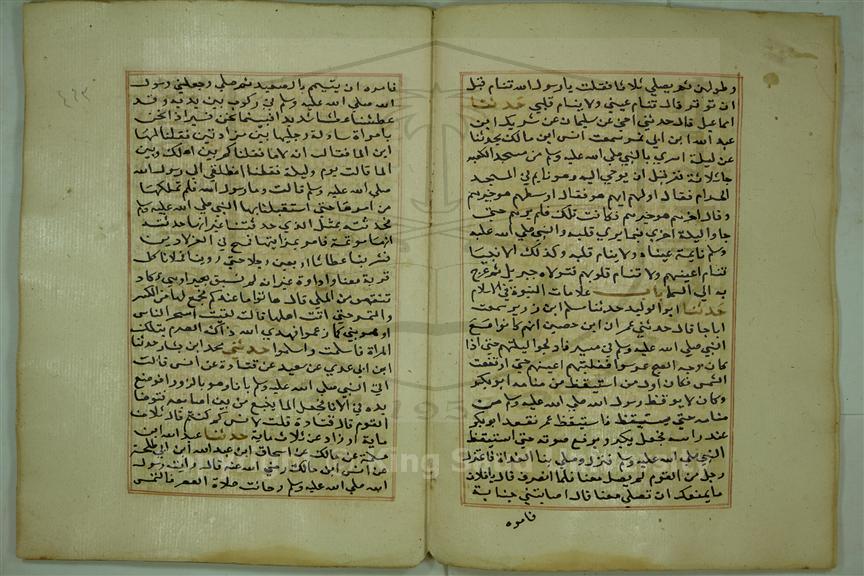 وطولهن ثم يصلي ثلاثا فقلت يا رسول الله تنام قبل
ان توتر قال تنام عيني ولا ينام قلبي حدثنا
اسماعيل قال حدثني اخي عن سليمان عن شريك ابن
عبد الله ابن ابي نمر سمعت انس ابن مالك يحدثنا
عن ليلة اسري بالنبي صلي الله عليه وسلم من مسجد الكعبة
جا ثلاثة نفر قبل ان يوحي اليه وهو نايم في المسجد
الحرام فقال اولهم ايهم هو فقال اوسطهم هو خيرهم
وقال اخرهم خيرهم فكانت تلك فلم يرهم حتي
جاوا ليلة اخري فيما يري قلبه والنبي صلي الله عليه
وسلم نايمة عيناه ولا ينام قلبه وكذلك الانبيا
تنام اعينهم ولا تنام قلوبهم فتولاه جبريل ثم عرج
به الي السما باب علامات النبوة في الاسلام
حدثنا ابو الوليد حدثنا سلم ابن زرير سمعت
ابا رجا قال حدثني عمران ابن حصين انهم كانوا مع
النبي صلي الله عليه وسلم في مسير فادلجوا ليلتهم حتي اذا
كان وجه الصبح عرسوا فغلبتهم اعينهم حتي ارتفعت
الشمس فكان اول من استيقظ من منامه ابو بكر
وكان لا يوقظ رسول الله صلي الله عليه وسلم من
منامه حتي يستيقظ فاستيقظ عمر فقعد ابو بكر
عند راسه فجعل يكبر ويرفع صوته حتي استيقظ
النبي صلي الله عليه وسلم فنزل وصلي بنا الغداة فاعتزل
رجل من القوم لم يصل معنا فلما انصرف قال يا فلان
ما يمنعك ان تصلي معنا قال اصابتني جنابة
فامره
فامره ان يتيمم بالصعيد ثم صلي وجعلني رسول
الله صلي الله عليه وسلم في ركوب بين يديه وقد
عطشنا عطشا شديدا فبينما نحن نسير اذا نحن
بامراة سادلة رجليها بين مزادتين فقلنا لها
اين الما فقالت انه لا ما فقلنا كم بين اهلك وبين
الما قالت يوم وليلة فقلنا انطلقي الي رسول الله
صلي الله عليه وسلم قالت وما رسول الله فلم نملكها
من امرها حتي استقبلنا بها النبي صلي الله عليه وسلم
فحدثته بمثل الذي حدثتنا غير انها حدثته
انها موتمة فامر بمزادتيها فمسح في العزلاوين
فشربنا عطاشا اربعين رجلا حتي روينا فملانا كل
قربة معنا واداوة غير انه لم نسق بعيرا وهي تكاد
تنض من الملي ثم قال هاتوا ما عندكم فجمع لها من الكسر
والتمر حتي اتت اهلها قالت لقيت اسحر الناس
او هو نبي كما زعموا فهدي الله ذاك الصرم بتلك
المراة فاسلمت واسلموا حدثني محمد ابن بشار حدثنا
ابن ابي عدي عن سعيد عن قتادة عن انس قال
اتي النبي صلي الله عليه وسلم بانا وهو بالزورا فوضع
يده في الانا فجعل الما ينبع من بين اصابعه فتوضا
القوم قال قتادة قلت لانس كم كنتم قال ثلاث
ماية او زها ثلاث ماية حدثنا عبد الله ابن
مسلمة عن مالك عن اسحاق ابن عبد الله ابن ابي طلحة
عن انس ابن مالك رضي الله عنه قال رايت رسول
الله صلي الله عليه وسلم وحانت صلاة العصر فالتمس
1957
King Saud University